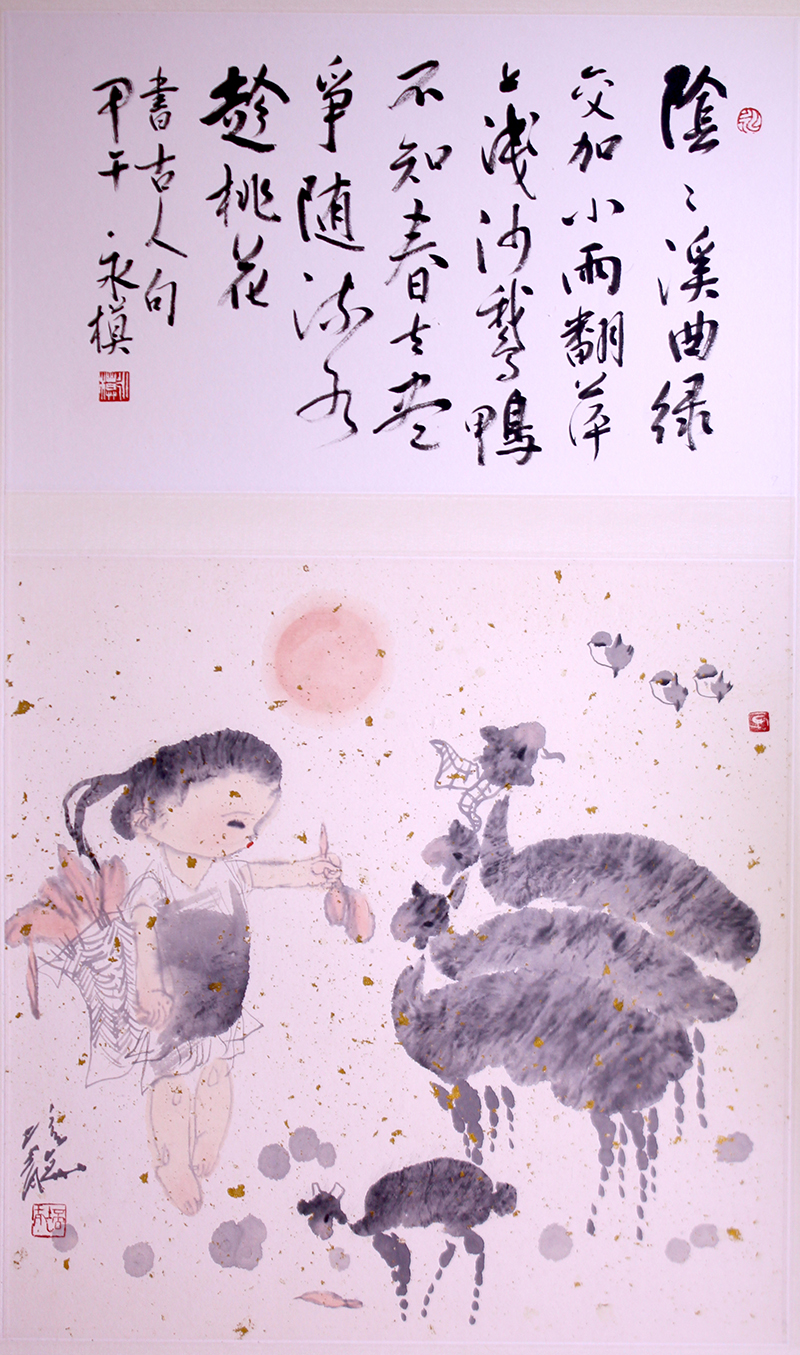 陰〻溪曲绿
交加小雨翻萍
上浅沙鵝鴨
不知春去尽
爭随流水
趁桃花
書古人句
甲午 永模